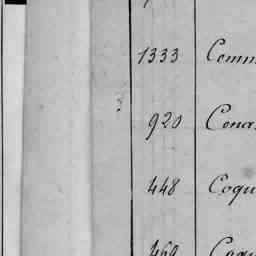 1333 Comm
920 Cona
448 Coqu
469 Coqu